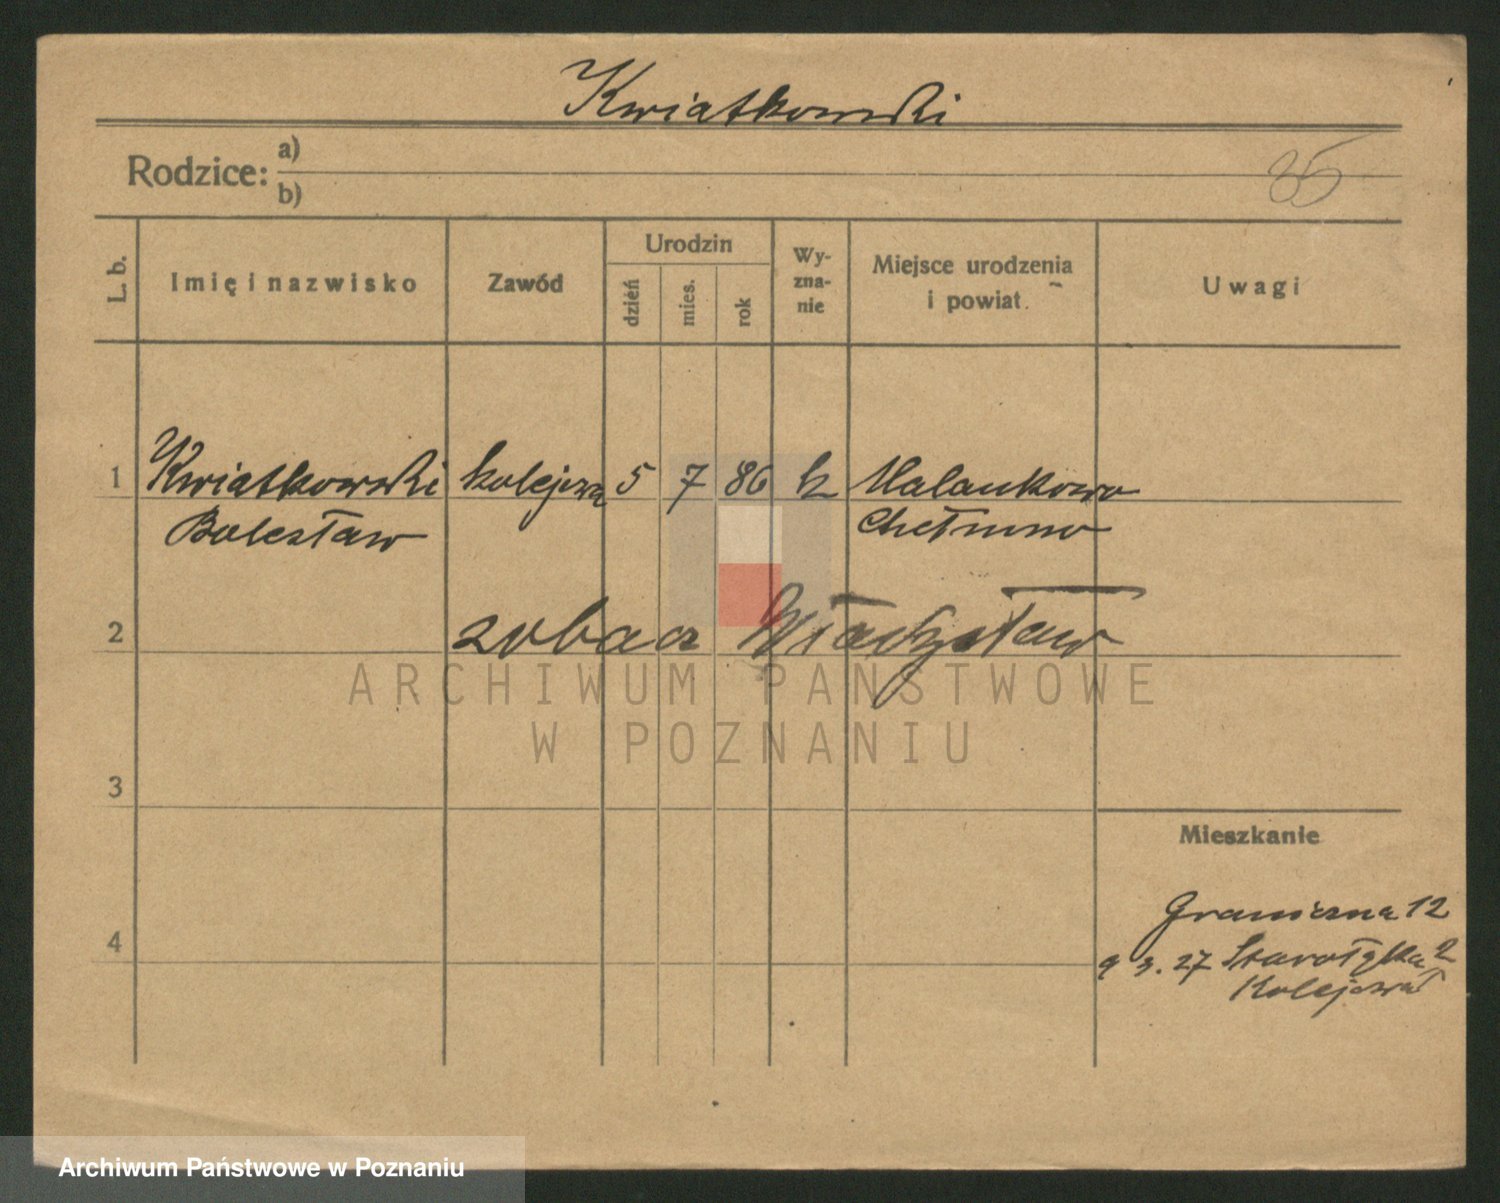 Kwiatkowski
Rodzice: a)
b)
35
L. b.
Imię i nazwisko
Zawód
Urodzin
dzień
mies.
rok
Wy-
zna-
nie
Miejsce urodzenia
i powiat.
Uwagi
1 Kwiatkowski kolejowa 5 7 86 k Malankowo
Bolesław Chełmno
2 zobacz Władysław
ARCHIWUM PAŃSTWOWE
W POZNANIU
3
Mieszkanie
Graniczna 12
4
9 3. 27 Starołęka 2
Kolejowa
Archiwum Państwowe w Poznaniu